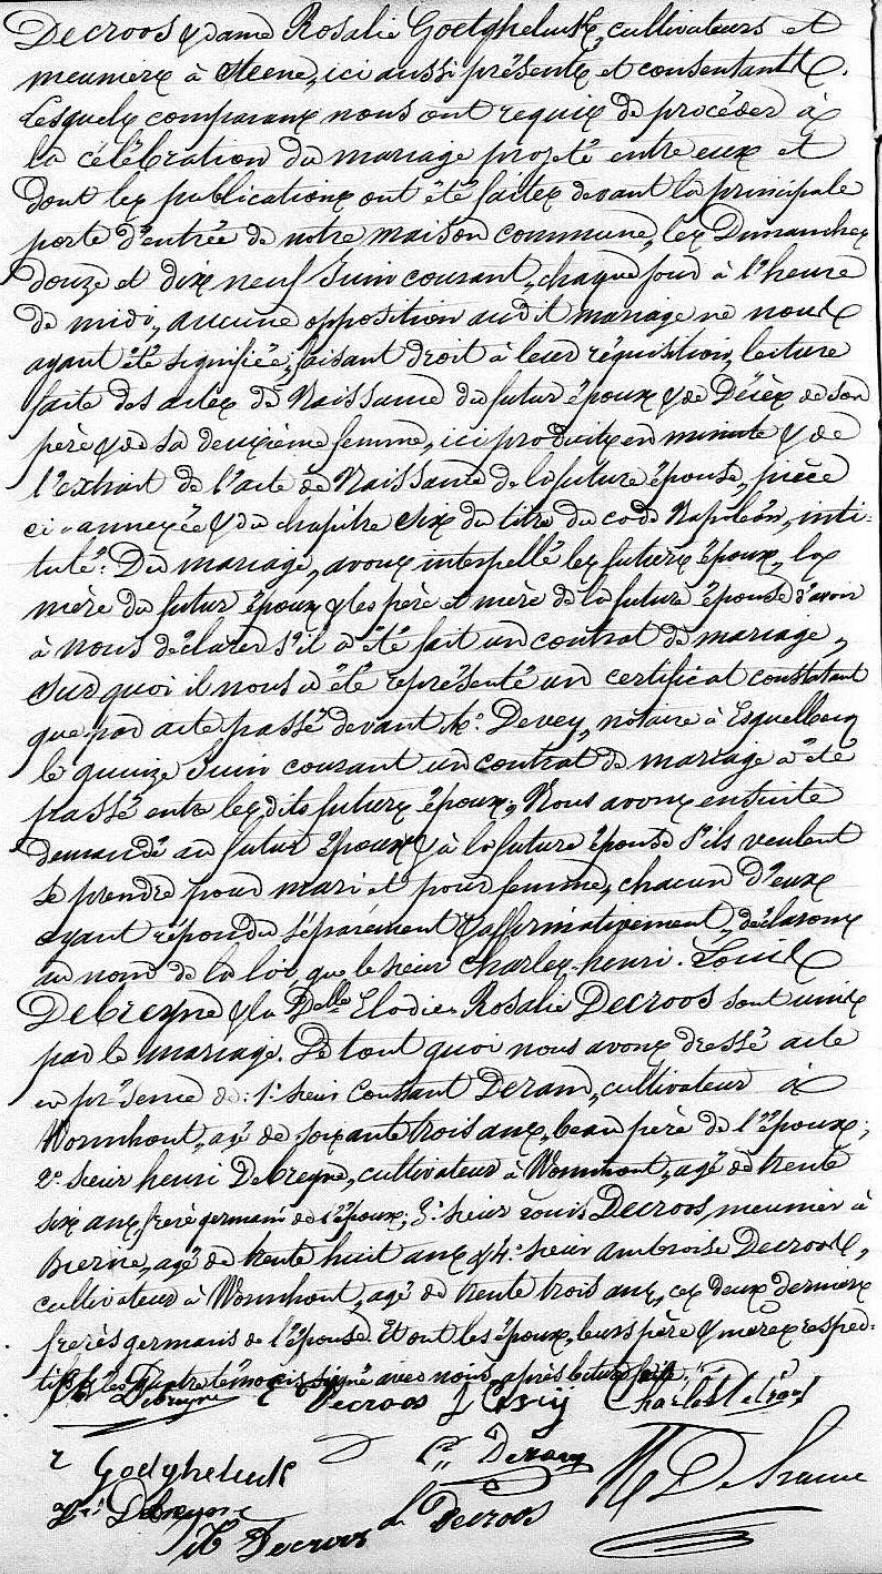 Decroos & dame Rosalie Goetgheluck, cultivateurs et
meuniers à Steene, ici aussi présents et consentants.
Lesquels comparans nous ont requis de procéder à
la célébration du mariage projeté entre eux et
dont les publications ont été faites devant la principale
porte d'entrée de notre maison commune, les Dimanches
douze et dix neuf Juin courant, chaque jour à l'heure
de midi, aucune opposition audit mariage ne nous
ayant été signifiée, faisant droit à leur réquisition, lecture
faite des actes de Naissance du futur époux & de Décès de son
père & de sa deuxième femme, ici produits en minute & de
l'extrait de l'acte de Naissance de la future épouse, pièce
ci-annexée & du chapitre Six du titre du code Napoléon, inti-
tulé: Du mariage, avons interpellé les futurs époux, la
mère du futur époux & les père et mère de la future épouse d'avoir
à nous déclarer s'il a été fait un contrat de mariage,
Sur quoi il nous a été représenté un certificat constatant
que par acte passé devant Me. Devey, notaire à Esquelbecq
le quinze Juin courant un contrat de mariage a été
passé entre les dits futurs époux, Nous avons ensuite
demandé au futur époux & à la future épouse s'ils veulent
se prendre pour mari et pour femme, chacun d'eux
ayant répondu séparément & affirmativement, déclarons
au nom de la loi, que le sieur Charles-henri-Louis
Debreyne & la Delle Elodie-Rosalie Decroos sont unis
par le mariage. De tout quoi nous avons dressé acte
en présence de: 1° sieur Constant Deram, cultivateur à
Wormhout, agé de soixante trois ans, beau père de l'époux;
2° sieur henri Debreyne, cultivateur à Wormhout, agé de trente
six ans, frère germain de l'époux; 3° sieur Louis Decroos, meunier à
Bierne, agé de trente huit ans & 4° sieur ambroise Decroos,
cultivateur à Wormhout, agé de trente trois ans, ces deux derniers
frères germains de l'épouse. Et ont les époux, leurs père & mères respec-
tifs & les quatre témoins signé avec nous, après lecture faite.
Debreyne E Decroos Charles Decroos
Goetgheluck C. Deram
Debreyne L Decroos
Decroos